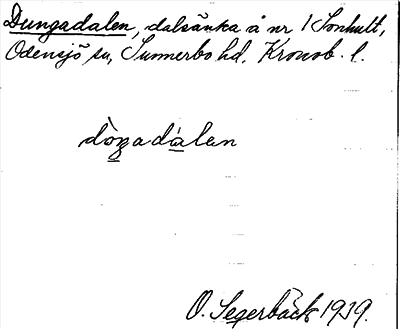 Dungadalen, dalsänka å nr 1 Sonhult,
Odensjö sn, Sunnerbo hd, Kronob. l.
dòŋadálen
O. Segerbäck 1939.